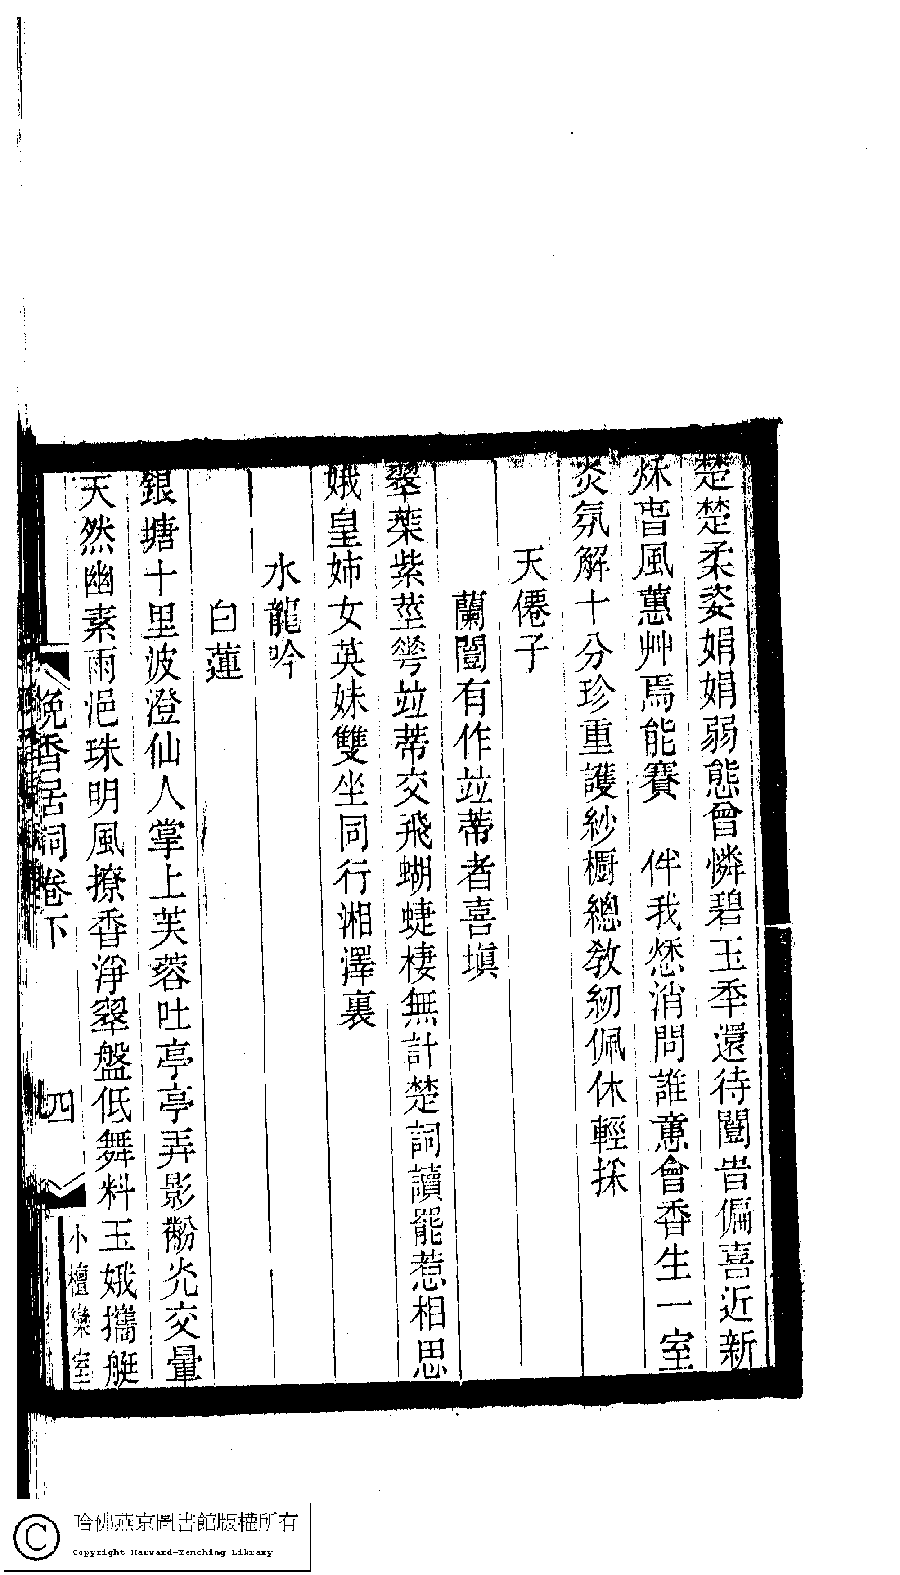 楚楚柔姿娟娟弱態曾憐碧玉秊還待闓旹偏喜近新
烌旹風蕙艸焉能賽　伴我愁消問誰意會香生一室
炎氛解十分珍重護紗櫥總教紉佩休輕採
天僊子
蘭闓有作竝蒂者喜塡
翠葉紫莖雩竝蒂交飛蝴蜨棲無計楚詞讀罷惹相思
娥皇姊女英妹雙坐同行湘澤裏
水龍吟
白蓮
銀塘十里波澄仙人掌上芙蓉吐亭亭弄影粉光交暈
天然幽素雨浥珠明風撩香淨翠盤低舞料玉娥攜艇
晚香居詞卷下
四
小檀欒室
哈佛燕京圖書館版權所有
Copyright Harvard-Yenching Library